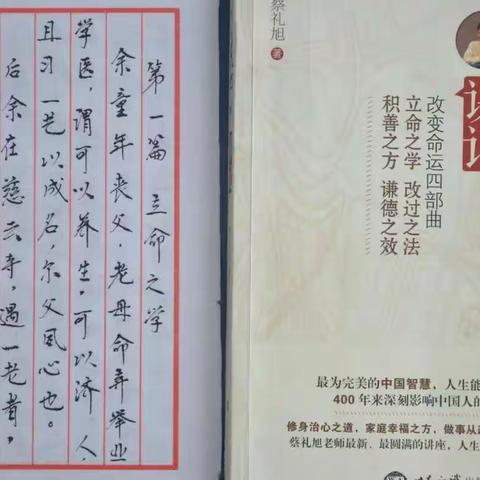 第一篇 立命之学
余童年丧父，老母命弃举业
学医，谓可以养生，可以济人，
且习一艺以成名，尔父夙心也。
后余在慈云寺，遇一老者，
蔡礼旭 著
改变命运四部曲
立命之学 改过之法
积善之方 谦德之效
最为完美的中国智慧，人生能
400年来深刻影响中国人的
修身治心之道，家庭幸福之方，做事从
蔡礼旭老师最新、最圆满的讲座，人生